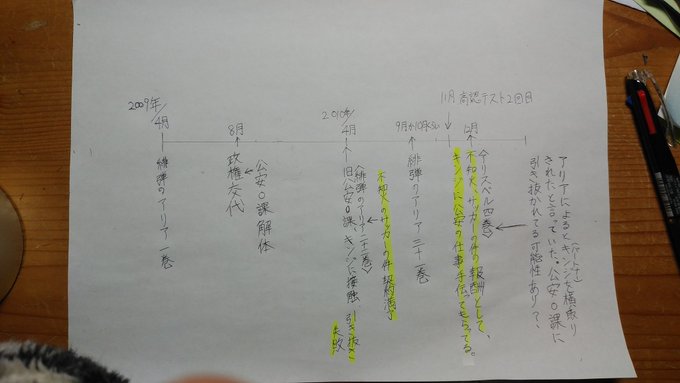 2009年/
4月
緋弾のアリア一巻
8月
政権交代
公安0課解体
2010年/
4月
旧公安0課、キンジに接触、引き抜き
失敗
不知火のサッカーの件
9月か10月くらい
緋弾のアリア二十一巻
11月 高認テスト2回目
12月
不知火、サッカーの件の報酬として、
キンジに公安の仕事手伝ってもらってる。
アリアによるとキンジを横取り
されたと言っていた。公安0課に
引き抜かれてる可能性あり?、